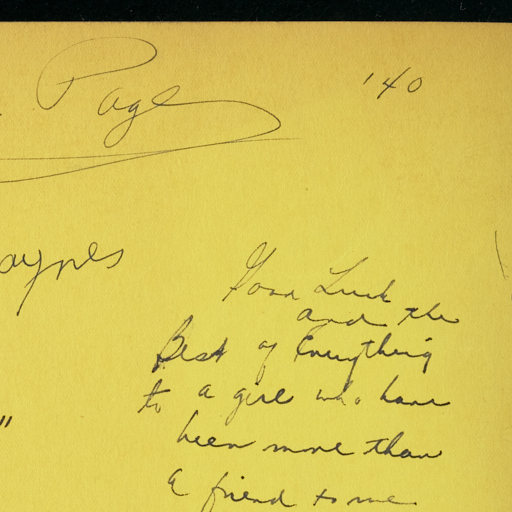 Page
'40
aynes
Good Luck
and the
Best of Everything
to a girl who have
been more than
"
a friend to me